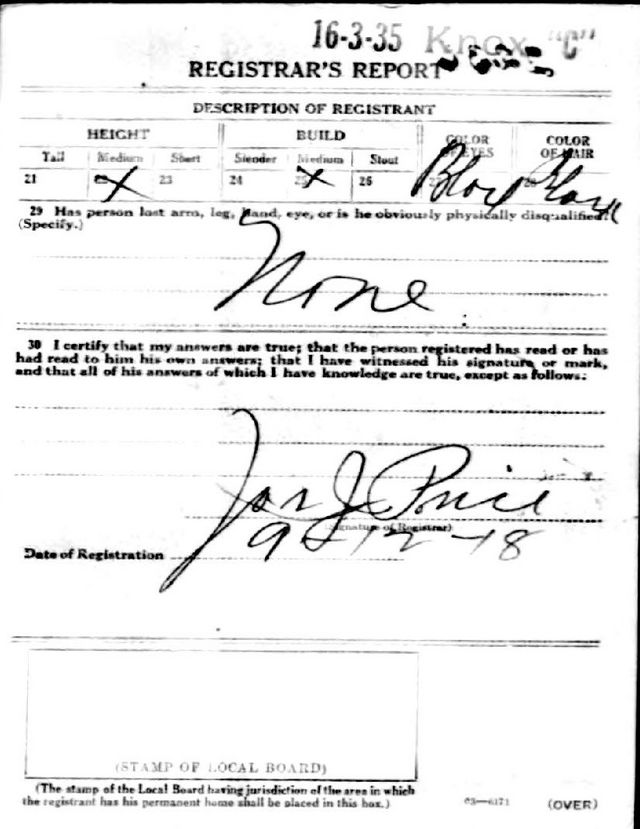 16-3-35 Knox "C"
REGISTRAR'S REPORT
DESCRIPTION OF REGISTRANT
HEIGHT BUILD COLOR OF EYES COLOR OF HAIR
Tall Medium Short Slender Medium Stout
21 22 X 23 24 25 X 26 27 28
29 Has person lost arm, leg, hand, eye, or is he obviously physically disqualified?
(Specify.)
None
30 I certify that my answers are true; that the person registered has read or has
had read to him his own answers; that I have witnessed his signature or mark,
and that all of his answers of which I have knowledge are true, except as follows:
J Price
(Signature of Registrar)
Date of Registration 9-12-18
(STAMP OF LOCAL BOARD)
(The stamp of the Local Board having jurisdiction of the area in which
the registrant has his permanent home shall be placed in this box.)
03—6171 (OVER)